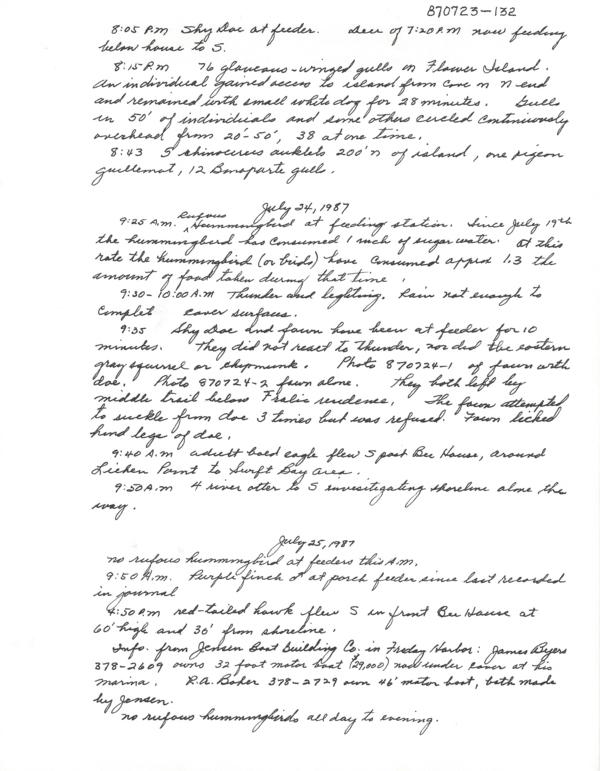 870723-132
8:05 P.M Shy Doe at feeder. Deer of 7:20 P.M now feeding
below house to S.
8:15 P.M 76 glaucous-winged gulls on Flower Island.
An individual gained access to island from cove on N end
and remained with small white dog for 28 minutes. Gulls
in 50' of individuals and some others circled continuously
overhead from 20'-50', 38 at one time.
8:43 5 rhinocerus auklets 200' n of island, one pigeon
guillemot, 12 Bonaparte gulls.
July 24, 1987
9:25 A.M. Rufous Hummingbird at feeding station. Since July 19th
the hummingbird has consumed 1 inch of sugar water. At this
rate the hummingbird (or birds) have consumed approx 1.3 the
amount of food taken during that time.
9:30-10:00 A.M Thunder and lighting. Rain not enough to
complet cover surface.
9:35 Shy Doe and fawn have been at feeder for 10
minutes. They did not react to thunder, nor did the eastern
gray squirrel or chipmunk. Photo 870724-1 of fawn with
doe. Photo 870724-2 fawn alone. They both left by
middle trail below residence. The fawn attempted
to suckle from doe 3 times but was refused. Fawn licked
hind legs of doe.
9:40 A.M adult bald eagle flew S past Bee House, around
Lichen Point to Swift Bay area.
9:50 A.M 4 river otter to S invesitegating shoreline alone the
way.
July 25, 1987
no rufous hummingbird at feeders this A.M.
9:50 A.M. Purple finch ♂ at porch feeder since last recorded
in journal
4:50 P.M red-tailed hawk flew S in front Bee House at
60' high and 30' from shoreline.
Info. from Jensen Boat Building Co. in Friday Harbor: James Byers
378-2609 owns 32 foot motor boat ($29,000) now under cover at his
marina. R.A. Baker 378-2729 own 46' motor boat, both made
by Jensen.
no rufous hummingbirds all day to evening.